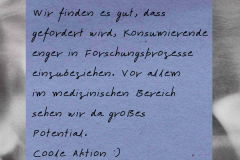 Wir finden es gut, dass
gefordert wird, Konsumierende
enger in Forschungsprozesse
einzubeziehen. Vor allem
im medizinischen Bereich
sehen wir da großes
Potential.
Coole Aktion :)